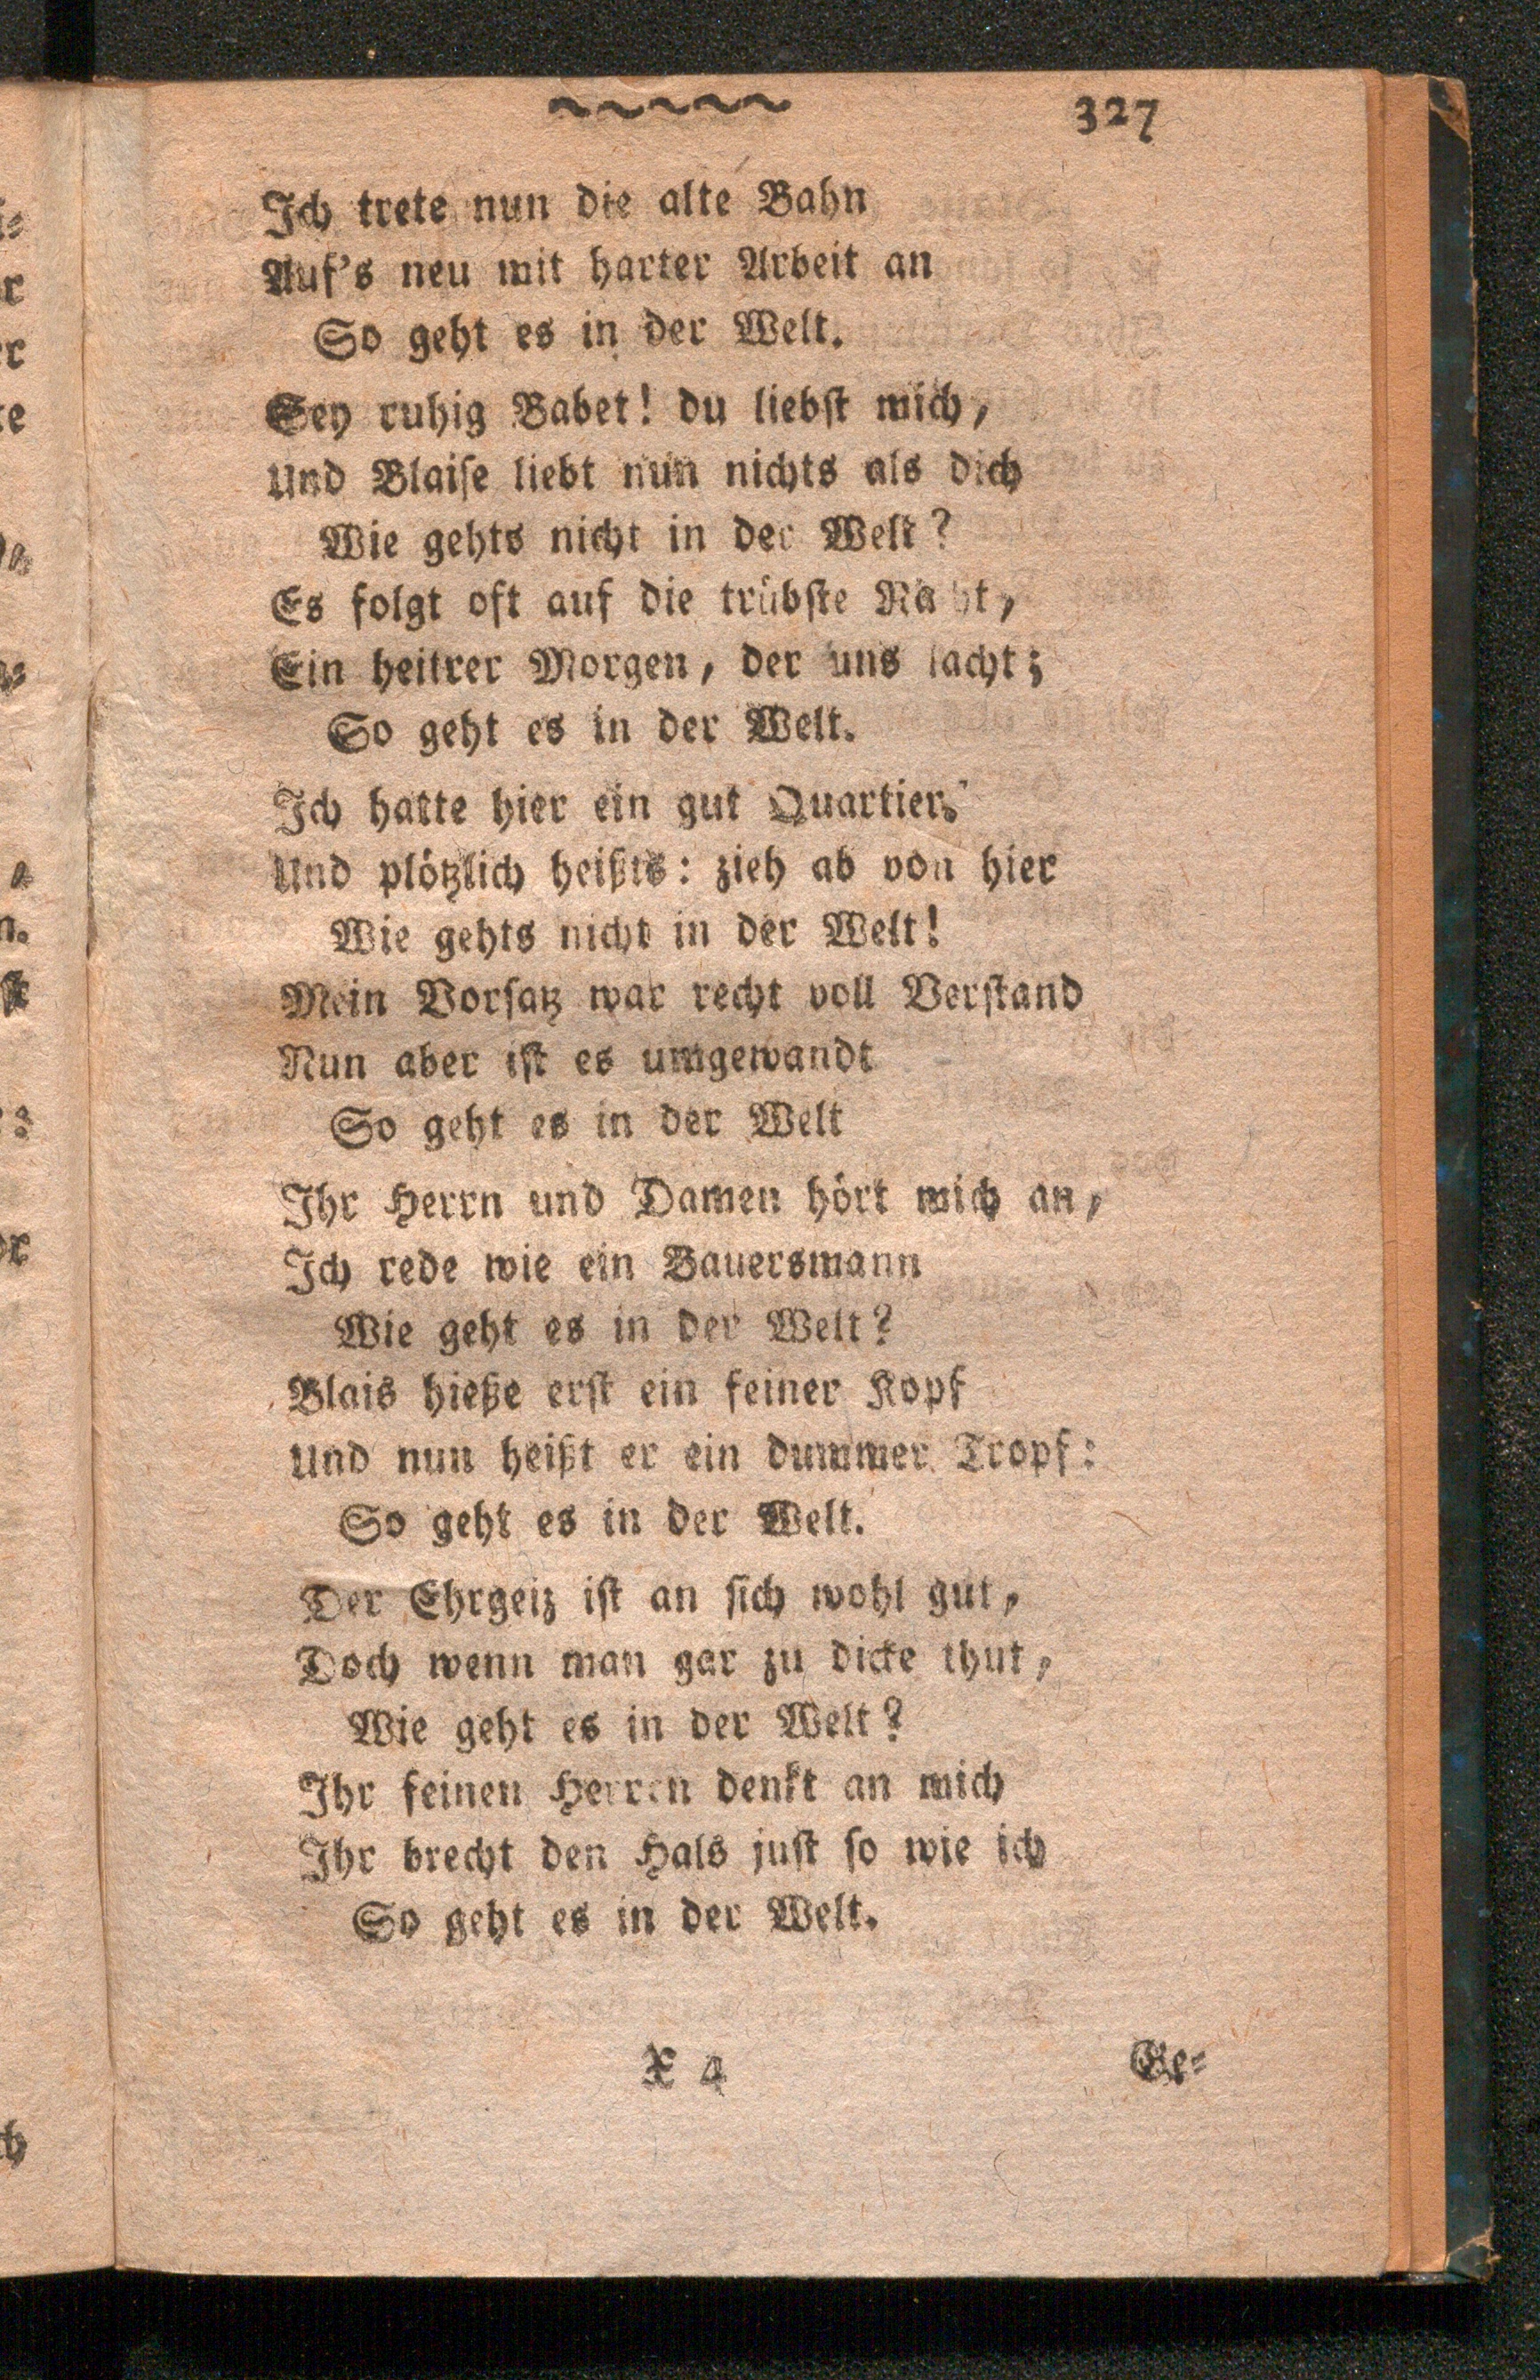 327
Ich trete nun die alte Bahn
Auf's neu mit harter Arbeit an
So geht es in der Welt.
Sey ruhig Babet! du liebſt mich,
Und Blaiſe liebt nun nichts als dich
Wie gehts nicht in der Welt?
Es folgt oft auf die trübſte Nacht,
Ein heitrer Morgen, der uns lacht;
So geht es in der Welt.
Ich hatte hier ein gut Quartier.
Und plötzlich heißts: zieh ab von hier
Wie gehts nicht in der Welt!
Mein Vorſatz war recht voll Verſtand
Nun aber iſt es umgewandt
So geht es in der Welt
Ihr Herrn und Damen hört mich an,
Ich rede wie ein Bauersmann
Wie geht es in der Welt?
Blais hieße erſt ein feiner Kopf
Und nun heißt er ein dummer Tropf:
So geht es in der Welt.
Der Ehrgeiz iſt an ſich wohl gut,
Doch wenn man gar zu dicke thut,
Wie geht es in der Welt?
Ihr feinen Herren denkt an mich
Ihr brecht den Hals juſt ſo wie ich
So geht es in der Welt.
X 4 Ge-